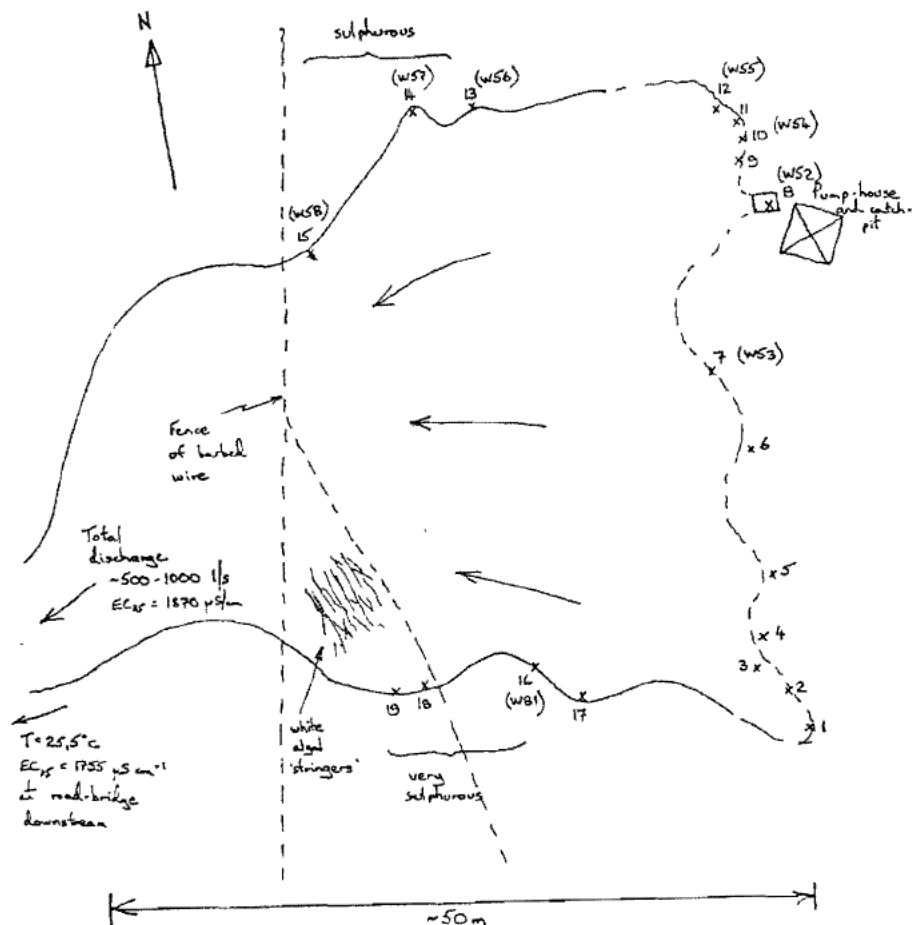 N
sulphurous
(W57)
14
(W56)
13
(W55)
12
11
10 (W54)
9
(W52)
8
Pump-house
and catch-
pit
(W58)
15
7 (W53)
6
Fence
of barbed
wire
Total
discharge
~500-1000 l/s
EC₂₅ = 1870 µS/cm
5
4
3
2
1
16
(W81)
17
18
19
white
algal
'stringers'
very
sulphurous
T = 25,5°C
EC₂₅ = 1755 µS cm⁻¹
at road-bridge
downstream
~50m